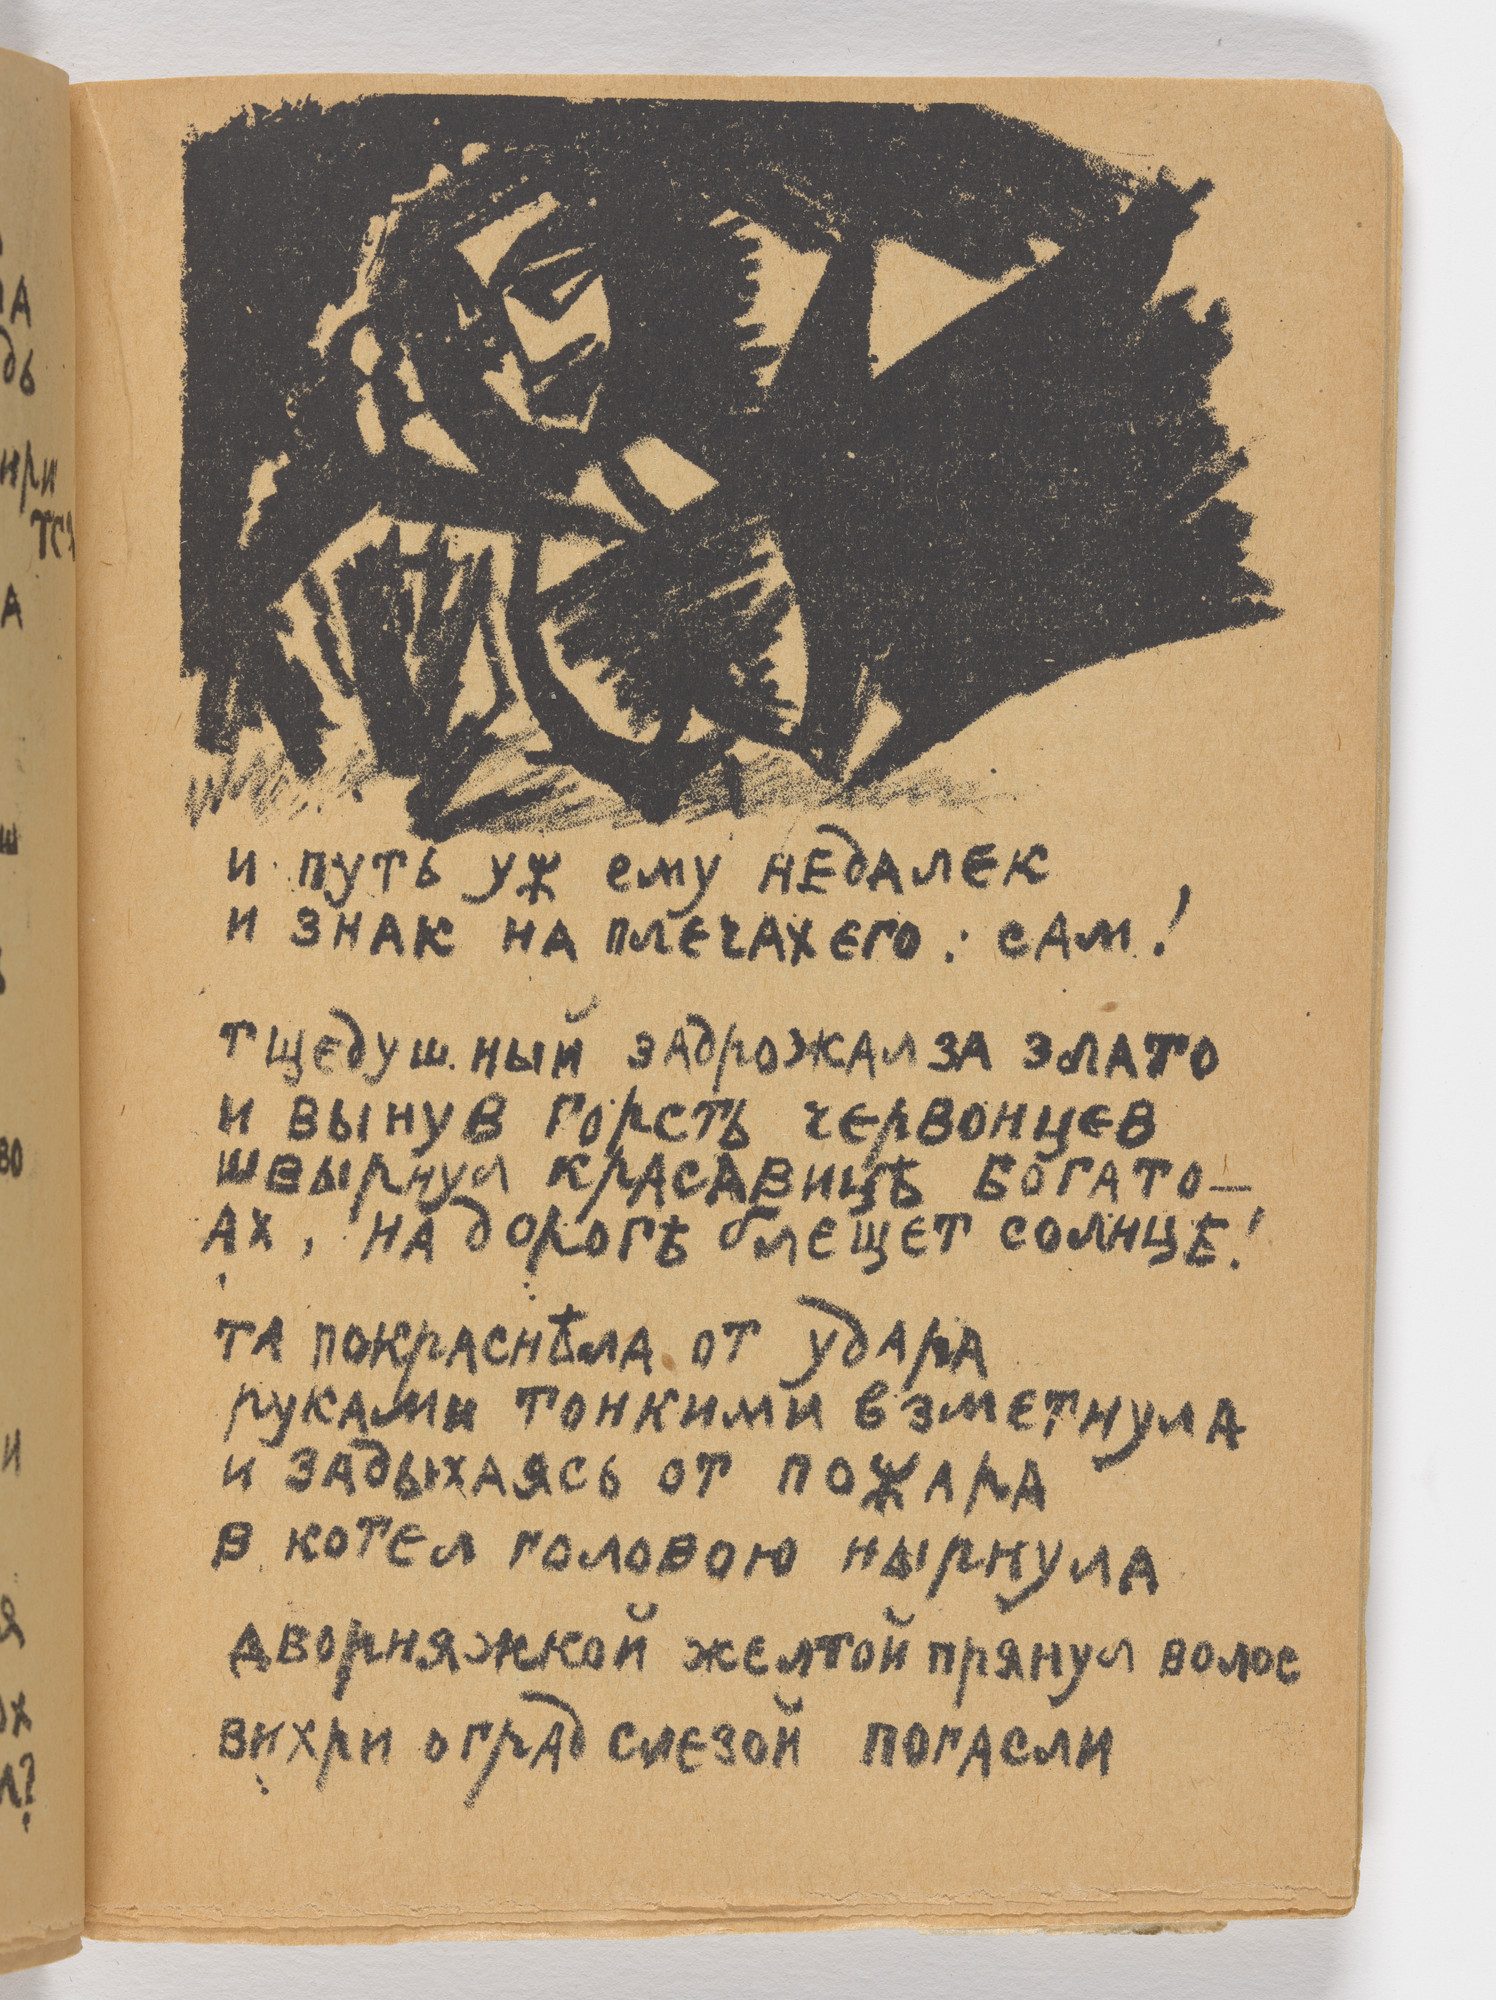 и путь уж ему недалек
и знак на плечах его: сам!
тщедушный задрожал за злато
и вынув горсть червонцев
швырнул красавицѣ богато—
Ах, на дорогѣ блещет солнце!
та покраснѣла от удара
руками тонкими взметнула
и задыхаясь от пожара
в котел головою нырнула
дворняжкой желтой прянул волос
вихри оград слезой погасли